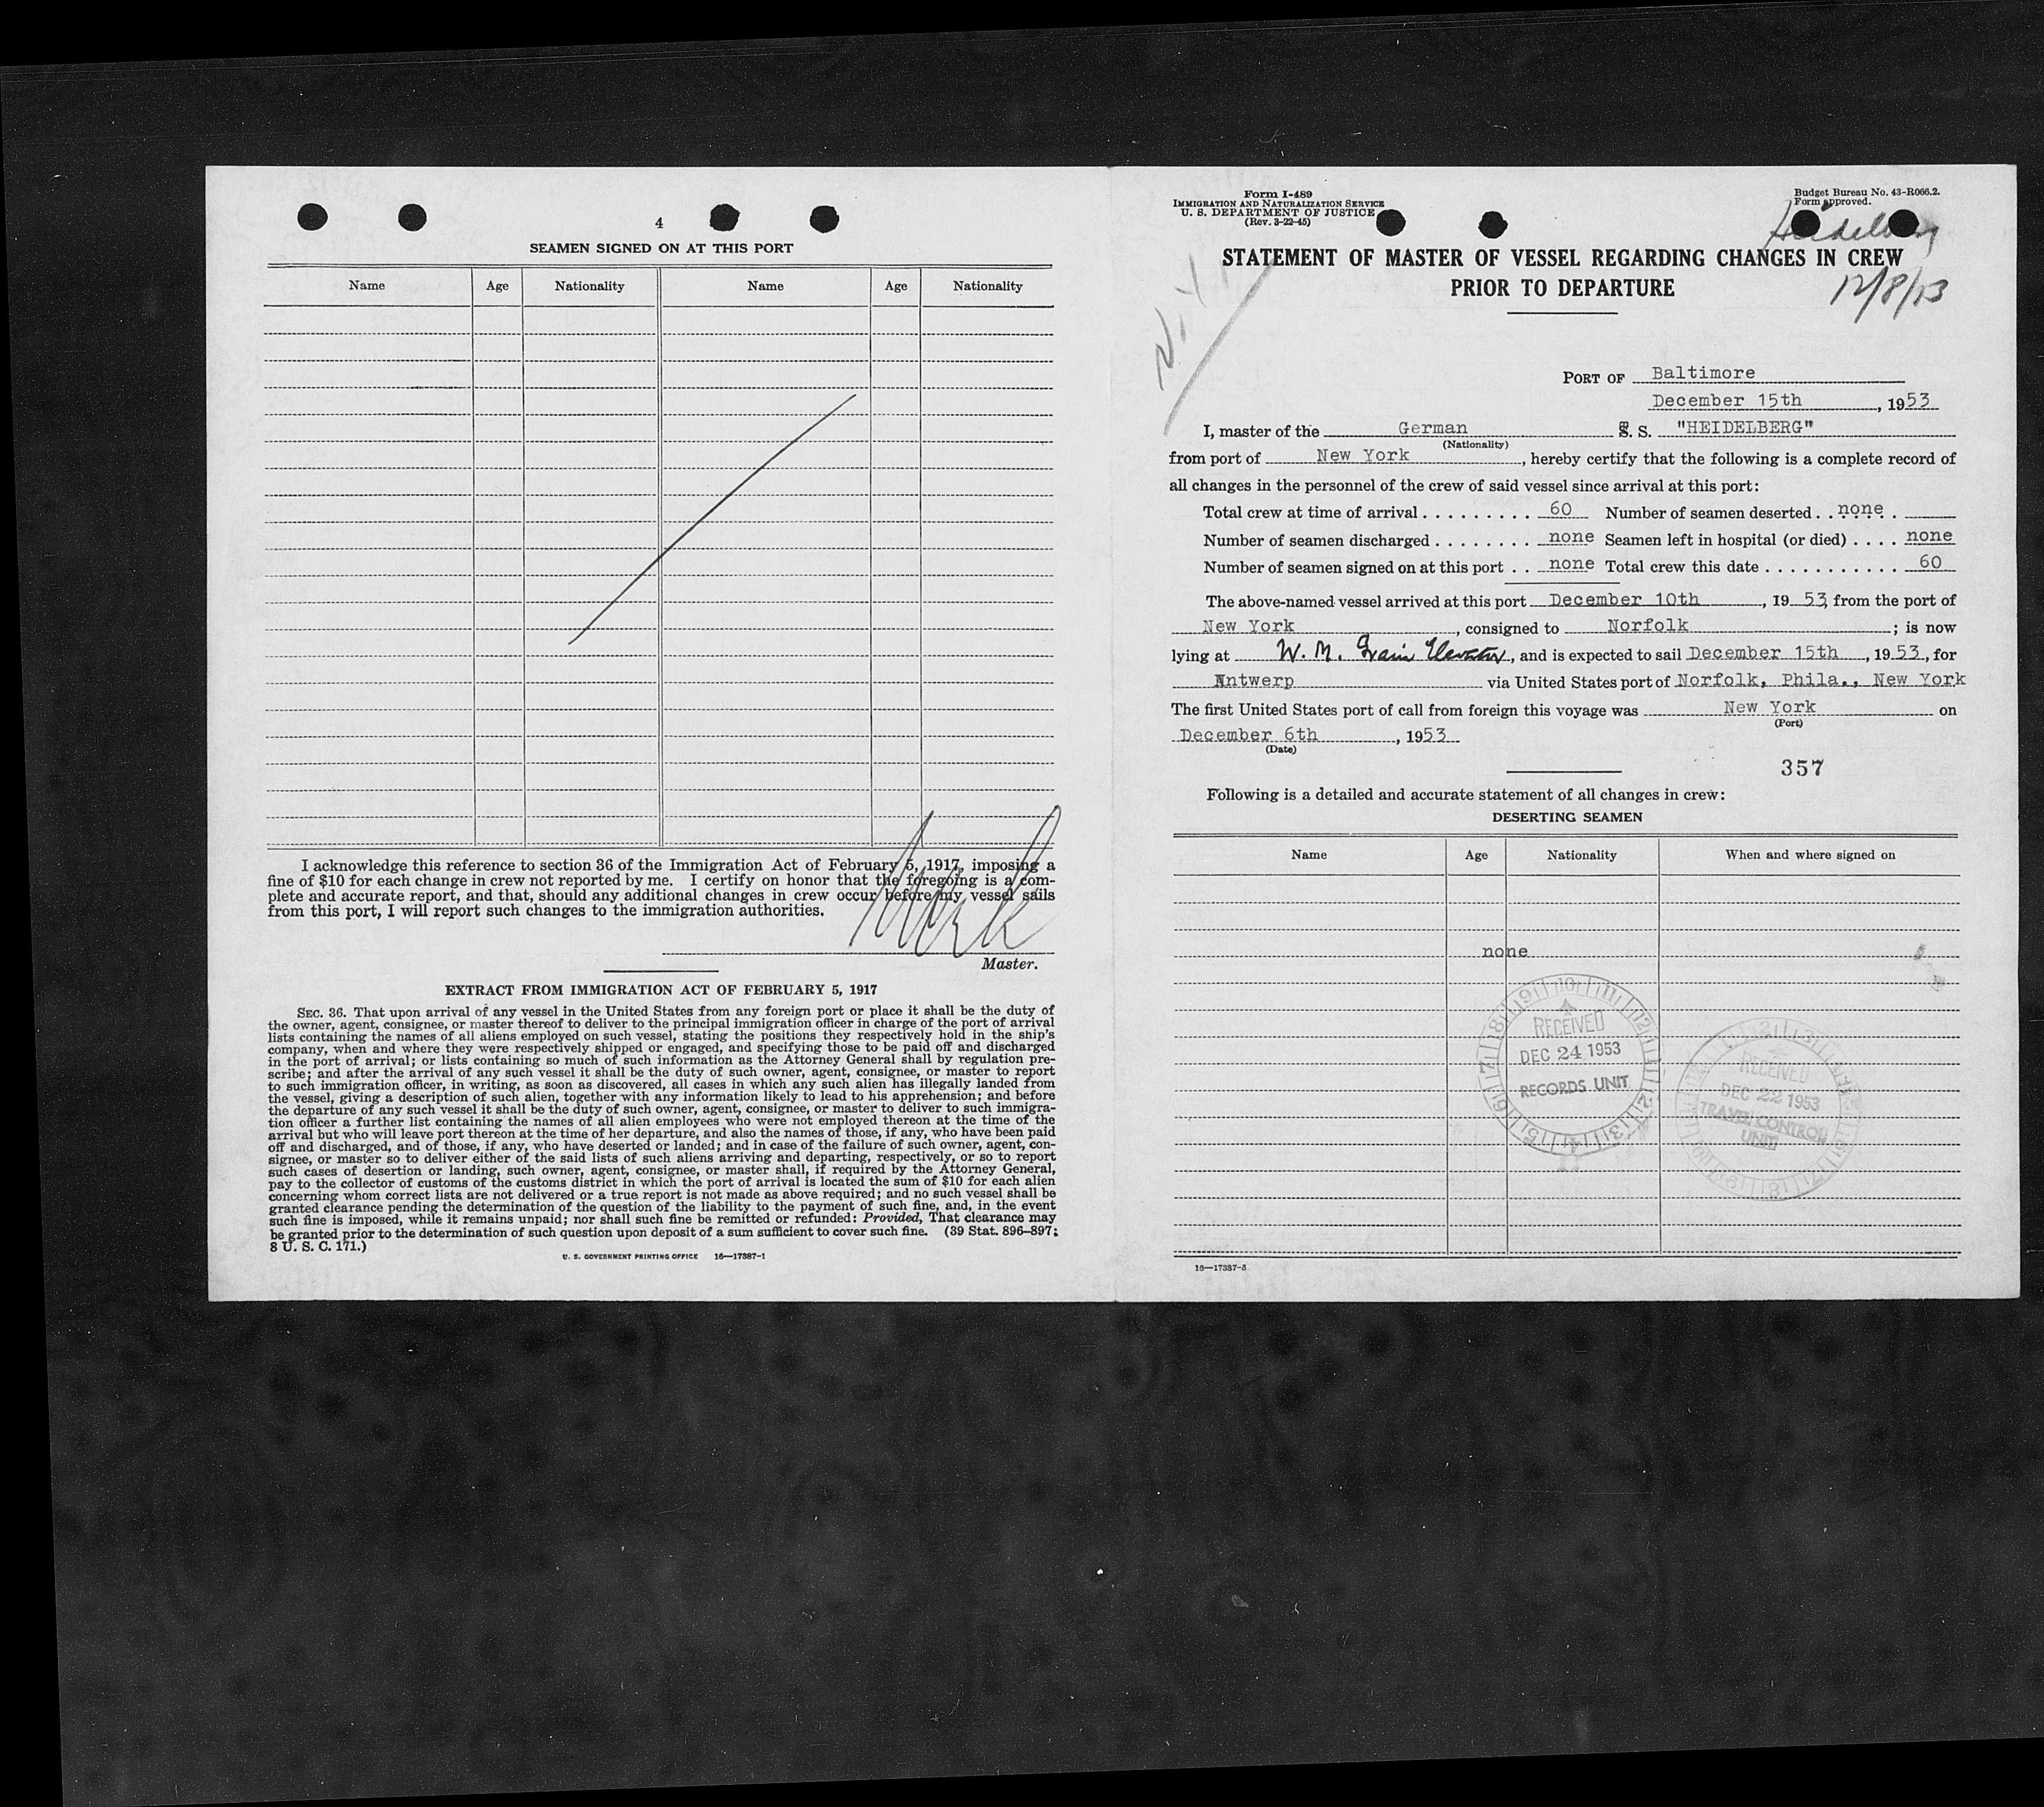 4
SEAMEN SIGNED ON AT THIS PORT
Name Age Nationality Name Age Nationality
I acknowledge this reference to section 36 of the Immigration Act of February 5, 1917, imposing a
fine of $10 for each change in crew not reported by me. I certify on honor that the foregoing is a com-
plete and accurate report, and that, should any additional changes in crew occur before my vessel sails
from this port, I will report such changes to the immigration authorities.
Master.
EXTRACT FROM IMMIGRATION ACT OF FEBRUARY 5, 1917
SEC. 36. That upon arrival of any vessel in the United States from any foreign port or place it shall be the duty of
the owner, agent, consignee, or master thereof to deliver to the principal immigration officer in charge of the port of arrival
lists containing the names of all aliens employed on such vessel, stating the positions they respectively hold in the ship's
company, when and where they were respectively shipped or engaged, and specifying those to be paid off and discharged
in the port of arrival; or lists containing so much of such information as the Attorney General shall by regulation pre-
scribe; and after the arrival of any such vessel it shall be the duty of such owner, agent, consignee, or master to report
to such immigration officer, in writing, as soon as discovered, all cases in which any such alien has illegally landed from
the vessel, giving a description of such alien, together with any information likely to lead to his apprehension; and before
the departure of any such vessel it shall be the duty of such owner, agent, consignee, or master to deliver to such immigra-
tion officer a further list containing the names of all alien employees who were not employed thereon at the time of the
arrival but who will leave port thereon at the time of her departure, and also the names of those, if any, who have been paid
off and discharged, and of those, if any, who have deserted or landed; and in case of the failure of such owner, agent, con-
signee, or master so to deliver either of the said lists of such aliens arriving and departing, respectively, or so to report
such cases of desertion or landing, such owner, agent, consignee, or master shall, if required by the Attorney General,
pay to the collector of customs of the customs district in which the port of arrival is located the sum of $10 for each alien
concerning whom correct lists are not delivered or a true report is not made as above required; and no such vessel shall be
granted clearance pending the determination of the question of the liability to the payment of such fine, and, in the event
such fine is imposed, while it remains unpaid; nor shall such fine be remitted or refunded: Provided, That clearance may
be granted prior to the determination of such question upon deposit of a sum sufficient to cover such fine. (39 Stat. 896-897;
8 U. S. C. 171.)
U. S. GOVERNMENT PRINTING OFFICE 16—17387-1
Form I-489
IMMIGRATION AND NATURALIZATION SERVICE
U. S. DEPARTMENT OF JUSTICE
(Rev. 3-22-45)
Budget Bureau No. 43-R066.2.
Form approved.
Heidelberg
STATEMENT OF MASTER OF VESSEL REGARDING CHANGES IN CREW
PRIOR TO DEPARTURE
12/8/53
N.Y.
PORT OF Baltimore
December 15th, 1953
I, master of the German S. S. "HEIDELBERG"
(Nationality)
from port of New York, hereby certify that the following is a complete record of
all changes in the personnel of the crew of said vessel since arrival at this port:
Total crew at time of arrival . . . . . . . . . 60 Number of seamen deserted . . none
Number of seamen discharged . . . . . . . . none Seamen left in hospital (or died) . . . . none
Number of seamen signed on at this port . . none Total crew this date . . . . . . . . . . . 60
The above-named vessel arrived at this port December 10th, 1953, from the port of
New York, consigned to Norfolk; is now
lying at W. M. Grain Elevator, and is expected to sail December 15th, 1953, for
Antwerp via United States port of Norfolk, Phila., New York
The first United States port of call from foreign this voyage was New York on
(Port)
December 6th, 1953
(Date)
357
Following is a detailed and accurate statement of all changes in crew:
DESERTING SEAMEN
Name Age Nationality When and where signed on
none
RECEIVED
DEC 24 1953
RECORDS UNIT
RECEIVED
DEC 22 1953
TRAVEL CONTROL
UNIT
16—17387-5